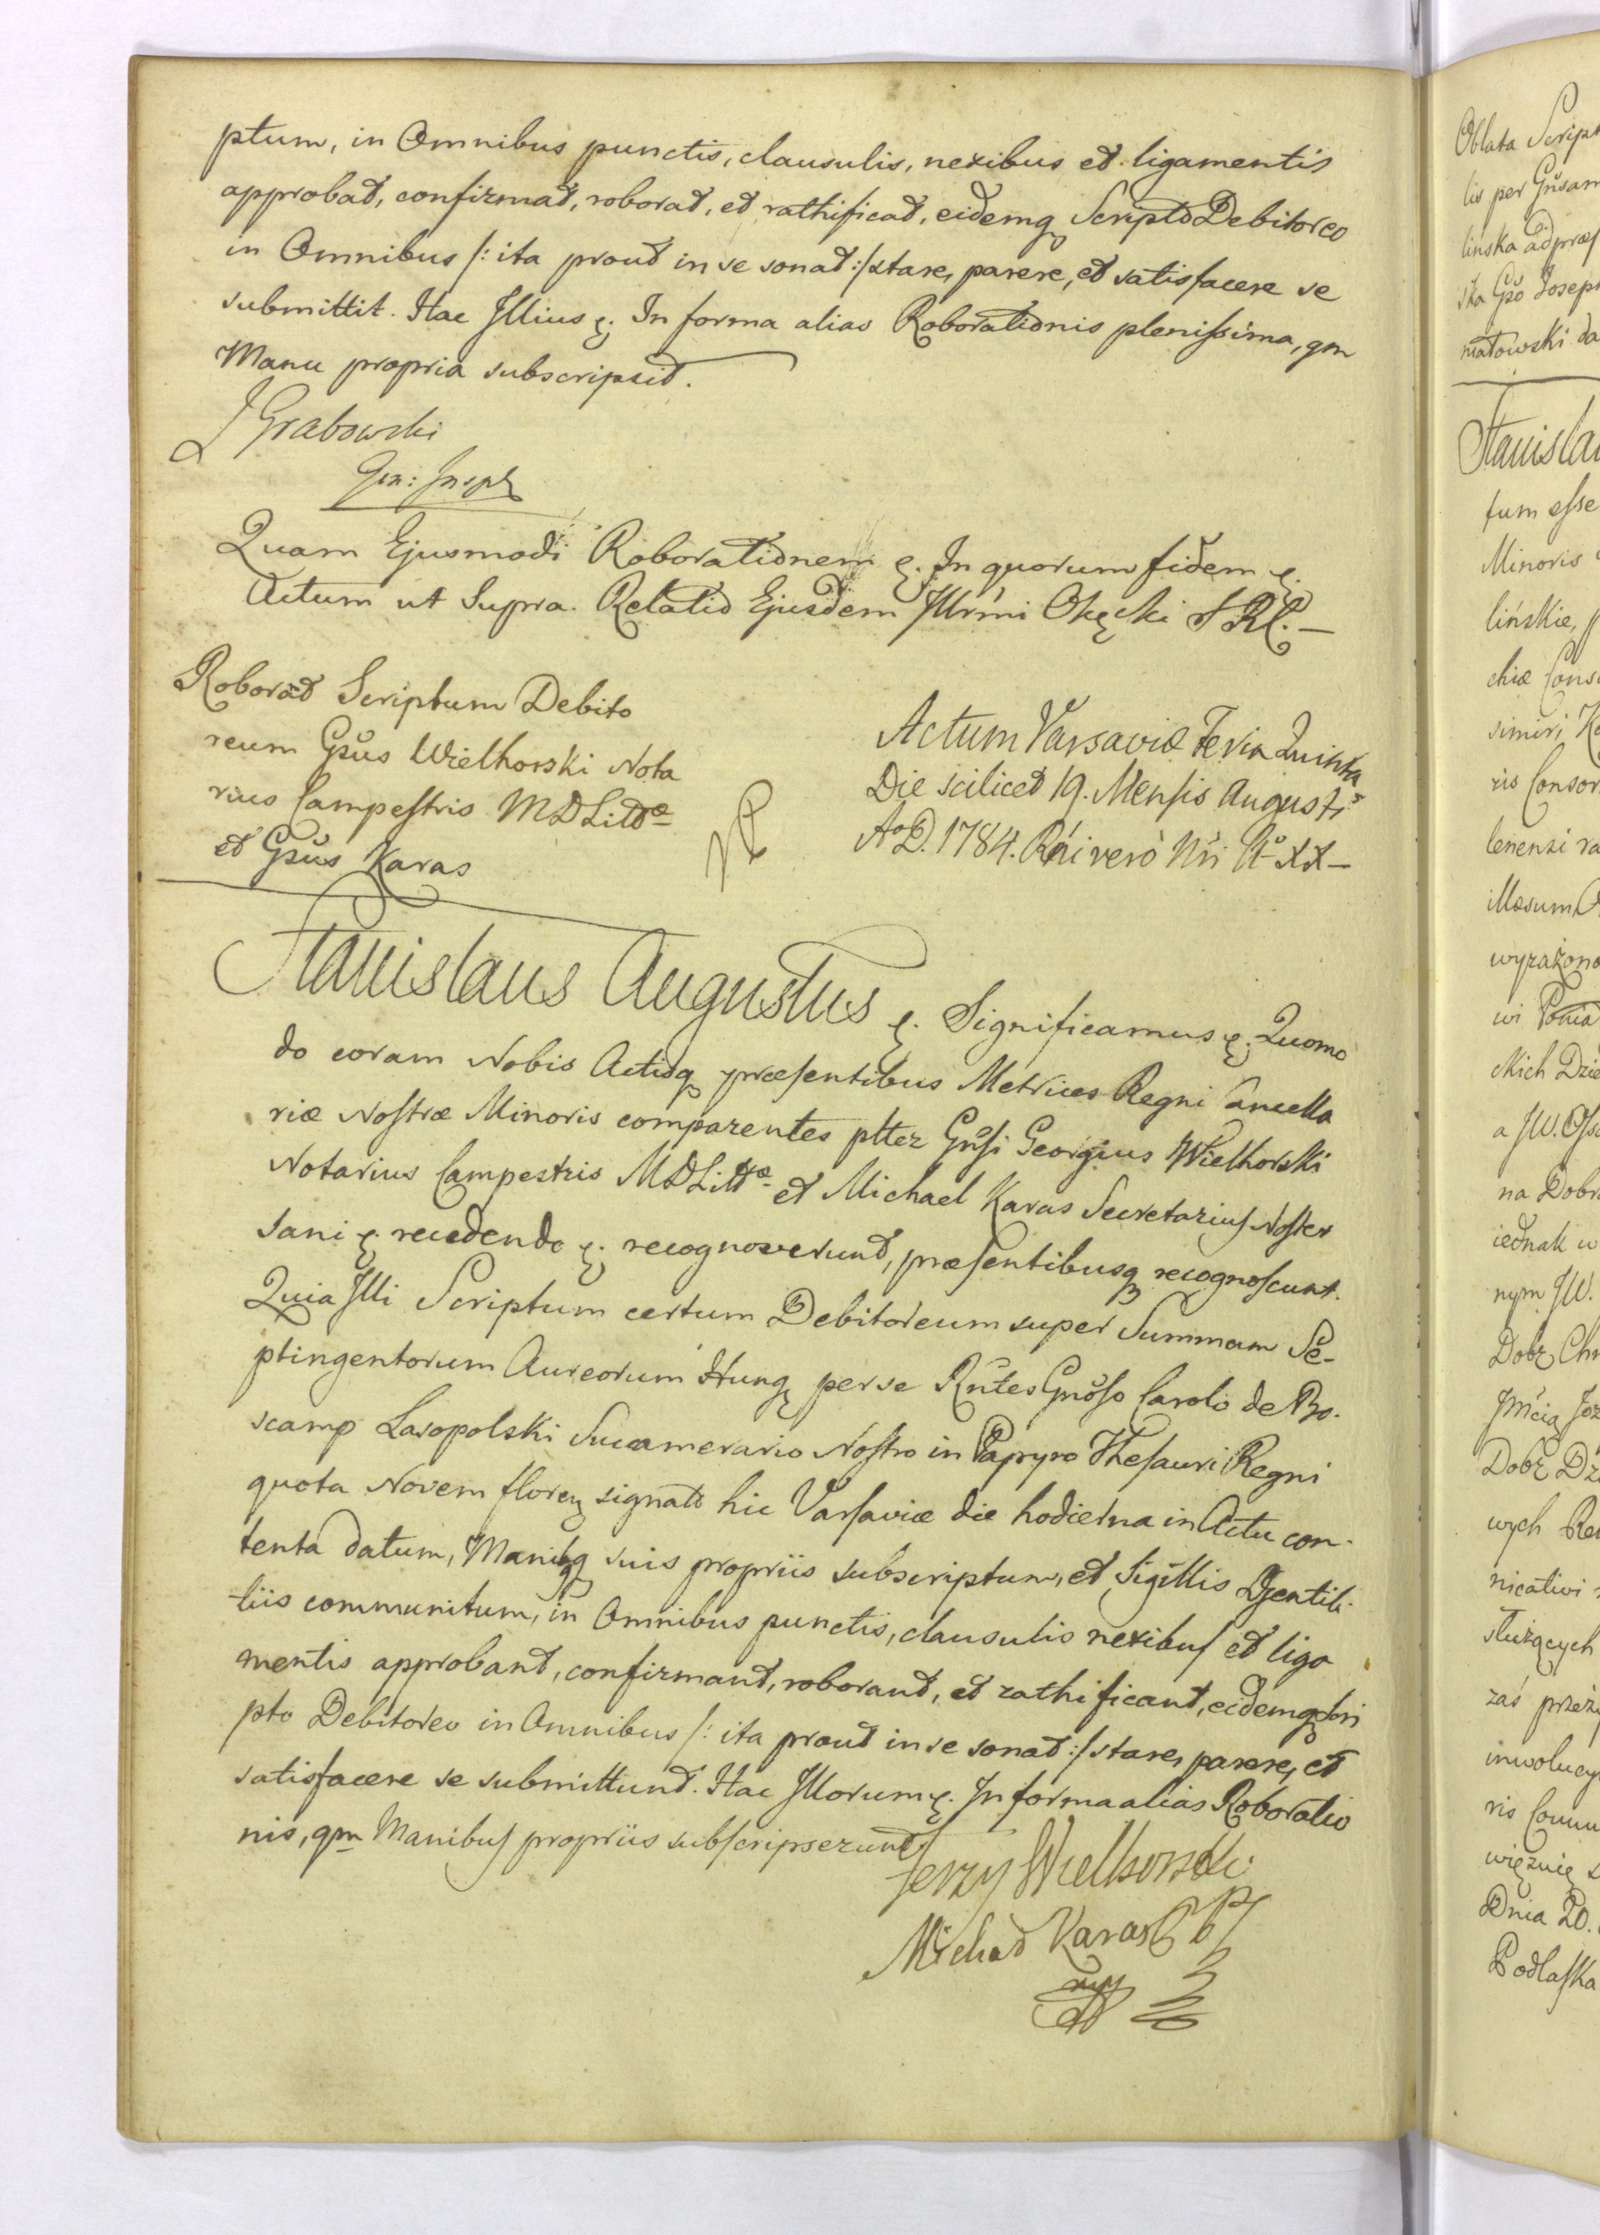 ptum, in Omnibus punctis, clausulis, nexibus et ligamentis
approbat, confirmat, roborat, et rathificat, eidemq Scripto Debitoreo
in Omnibus /: ita prout in se sonat :/ stare, parere, et satisfacere se
submittit. Hac Illius &. In forma alias Roborationis plenissima, qm
Manu propria subscripsit.
J Grabowski
Gen: Insp
Quam Ejusmodi Roborationem &. In quorum fidem &.
Actum ut Supra. Relatio Ejusdem Illrmi Okęcki S R C. —
Roborat Scriptum Debito
reum Gsus Wielhorski Nota
rius Campestris MDLittæ
et Gsus Karas
Actum Varsaviæ Feria Quinta
Die scilicet 19. Mensis Augusti
Ao D. 1784. Rni vero Nri Ao XX —
Stanislaus Augustus &. Significamus &. Quomo
do coram Nobis Actisq præsentibus Metrices Regni Cancella
riæ Nostræ Minoris comparentes plter Gnsi Georgius Wielhorski
Notarius Campestris MDLittæ et Michael Karas Secretarius Noster
Sani &. recedendo &. recognoverunt, præsentibusq recognoscunt.
Quia Illi Scriptum certum Debitoreum super Summam Se-
ptingentorum Aureorum Hung per se Rntes Gnoso Carolo de Bo-
scamp Lasopolski Succamerario Nostro in Papyro Thesauri Regni
quota Novem floren signato hic Varsaviæ die hodierna in Actu con-
tenta datum, Manibq suis propriis subscriptum, et Sigillis Gentili-
tiis communitum, in Omnibus punctis, clausulis nexibus et liga
mentis approbant, confirmant, roborant, et rathificant, eidemq Scri
pto Debitoreo in Omnibus /: ita prout in se sonat :/ stare, parere, et
satisfacere se submittunt. Hac Illorum &. In forma alias Roboratio
nis, qm Manibus propriis subscripserunt
Jerzy Wielhorski.
Michał Karas
mp
Oblata Script
lis per Gnsam
lińska ad præs
ska Gso Joseph
niatowski da
Stanislau
tum esse
Minoris
lińskie,
chiæ Cons
simiri, Ka
ris Consor
lenensi ra
illæsum
wyrażono
wi Ponia
ckich Dzie
a JW. Osso
na Dobra
iednak w
nym JW.
Dobr Chr
Jmcią Józ
Dobr Dz
wych Re
nicativi
służących
zaś przeży
inwolucy
ris Comm
więznię
Dnia 20.
Podlaska